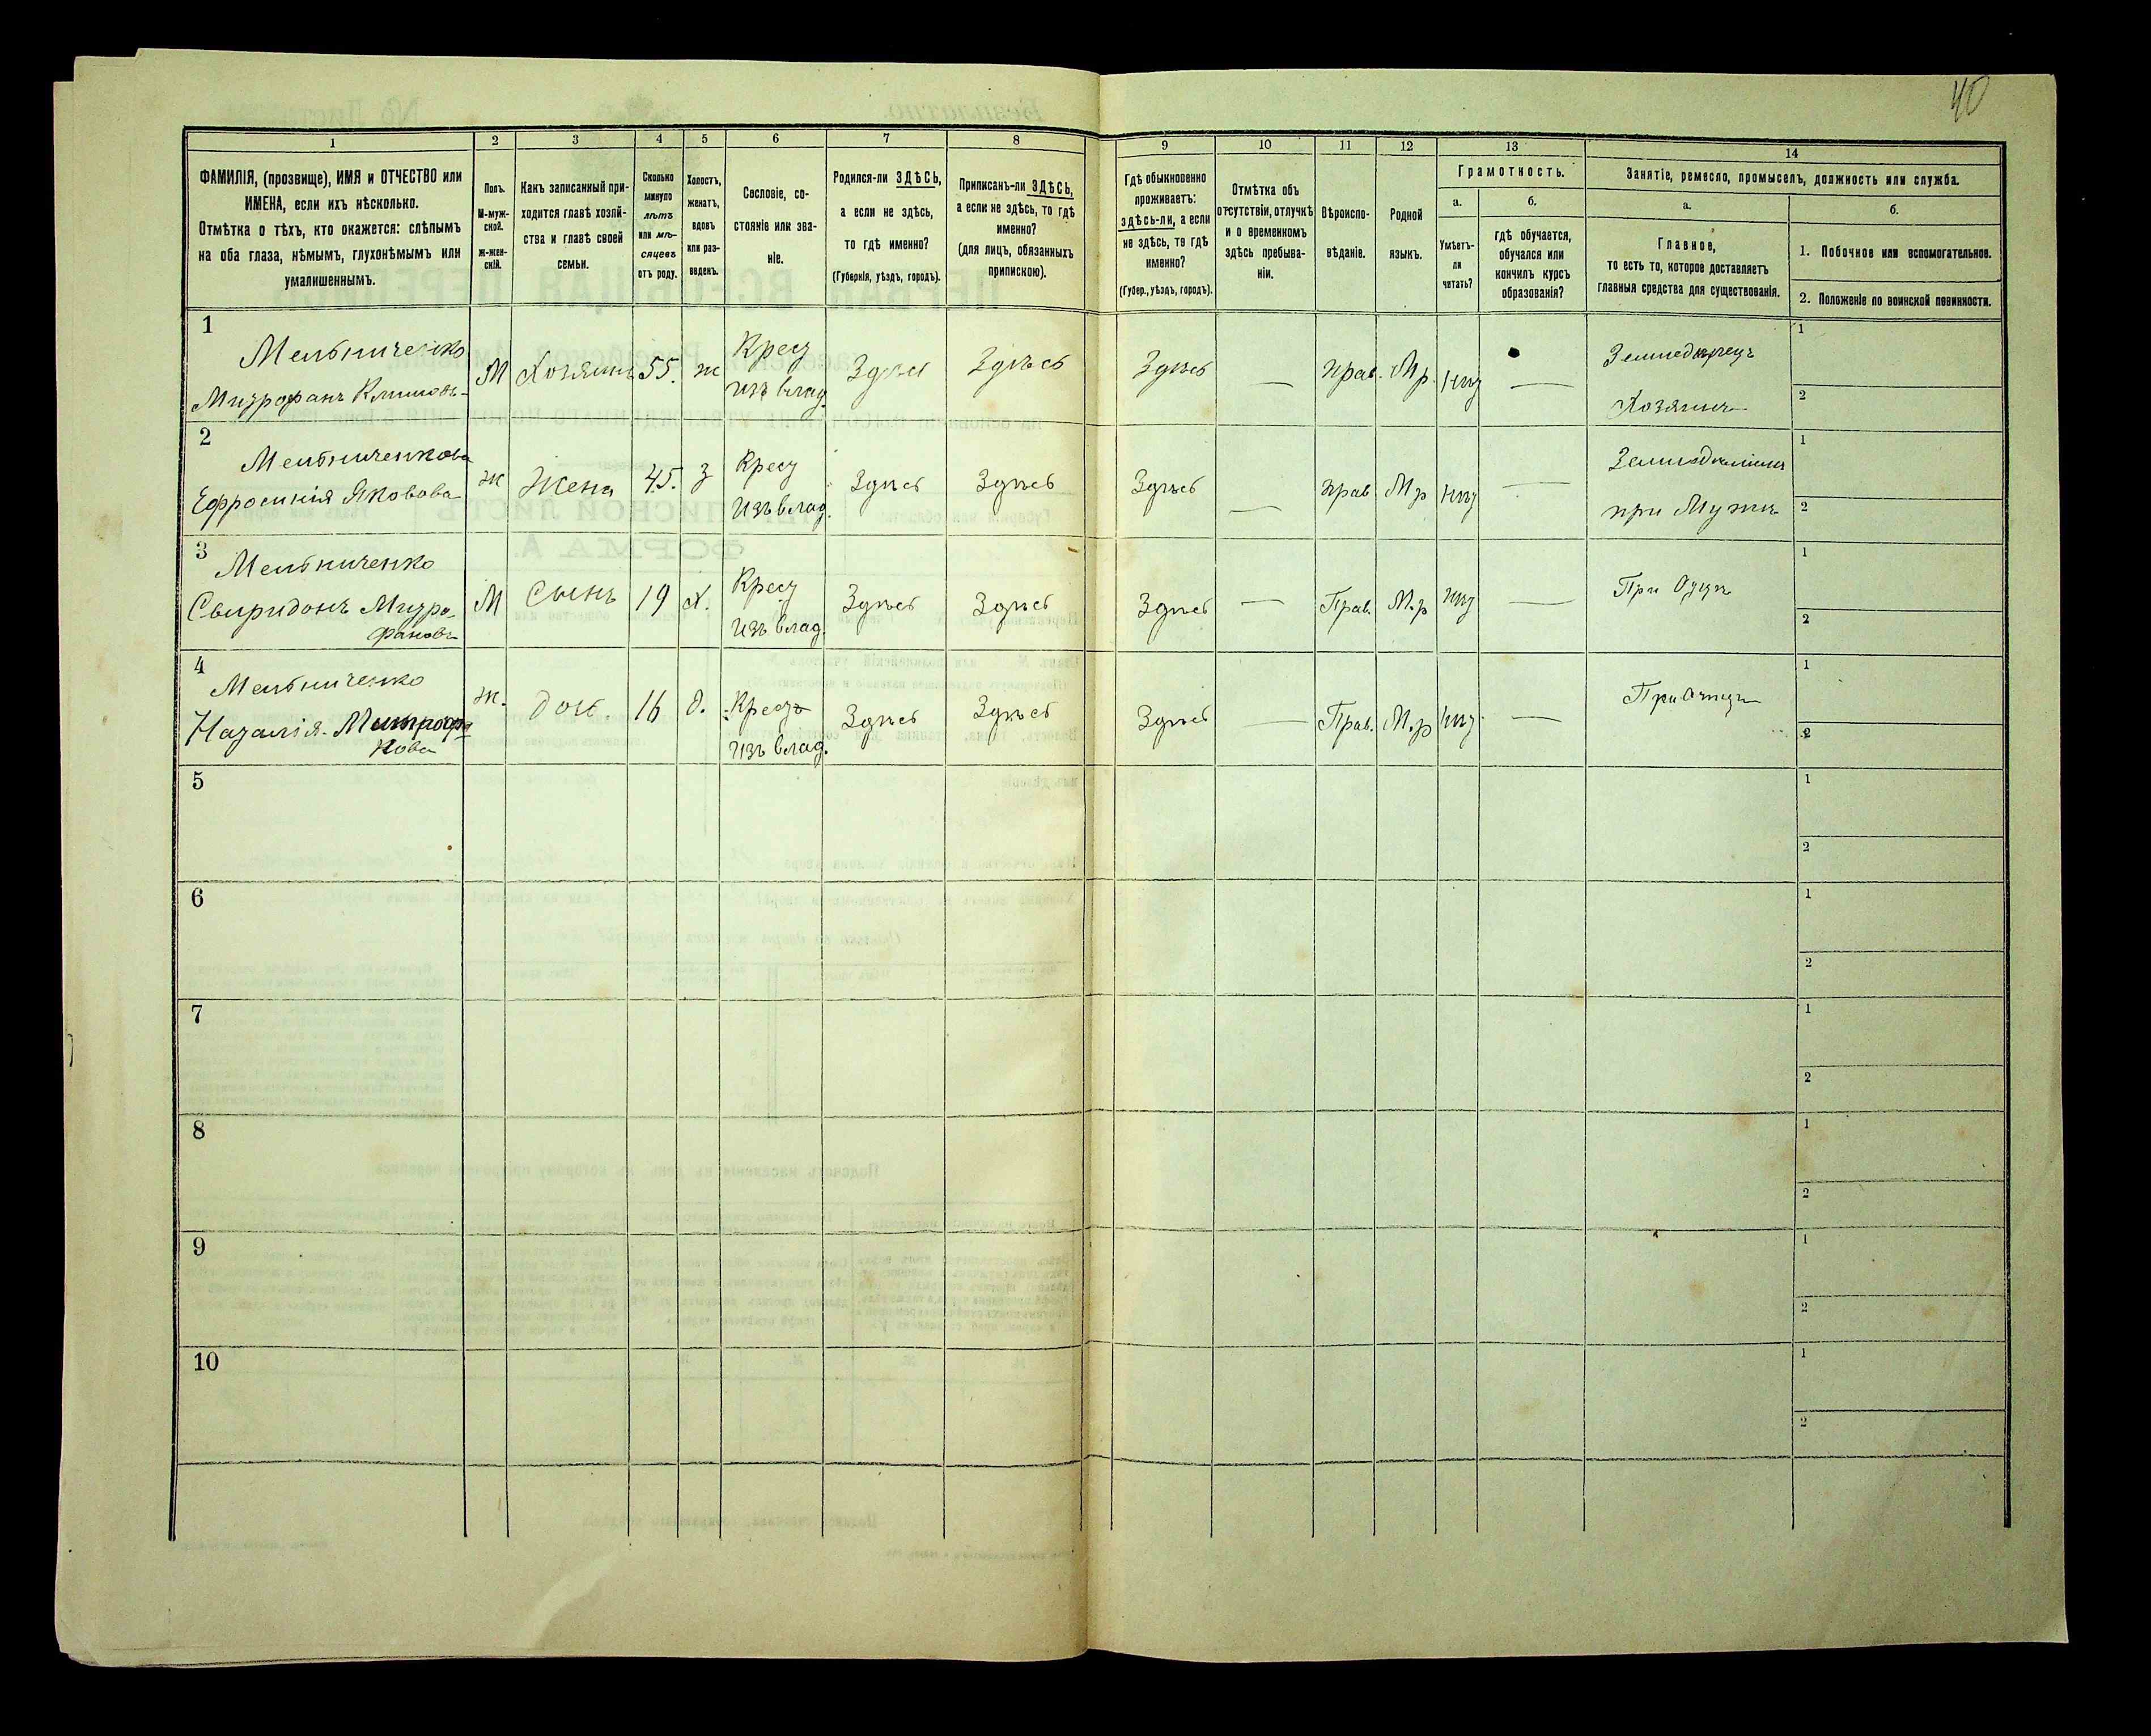 40
1 2 3 4 5 6 7 8 9 10 11 12 13 14
ФАМИЛІЯ, (прозвище), ИМЯ и ОТЧЕСТВО или
ИМЕНА, если ихъ нѣсколько.
Отмѣтка о тѣхъ, кто окажется: слѣпымъ
на оба глаза, нѣмымъ, глухонѣмымъ или
умалишеннымъ.
Полъ.
М-муж-
ской.
Ж-жен-
скій.
Какъ записанный при-
ходится главѣ хозяй-
ства и главѣ своей
семьи.
Сколько
минуло
лѣтъ
или мѣ-
сяцевъ
отъ роду.
Холостъ,
женатъ,
вдовъ
или раз-
веденъ.
Сословіе, со-
стояніе или зва-
ніе.
Родился-ли ЗДѢСЬ,
а если не здѣсь,
то гдѣ именно?
(Губернія, уѣздъ, городъ).
Приписанъ-ли ЗДѢСЬ,
а если не здѣсь, то гдѣ
именно?
(для лицъ, обязанныхъ
припискою).
Гдѣ обыкновенно
проживаетъ:
здѣсь-ли, а если
не здѣсь, то гдѣ
именно?
(Губер., уѣздъ, городъ).
Отмѣтка объ
отсутствіи, отлучкѣ
и о временномъ
здѣсь пребыва-
ніи.
Вѣроиспо-
вѣданіе.
Родной
языкъ.
Грамотность.
а.
Умѣетъ-
ли
читать?
б.
гдѣ обучается,
обучался или
кончилъ курсъ
образованія?
Занятіе, ремесло, промыселъ, должность или служба.
а.
Главное,
то есть то, которое доставляетъ
главныя средства для существованія.
б.
1. Побочное или вспомогательное.
2. Положеніе по воинской повинности.
1
Мельниченко
Митрофанъ Климовъ
М
Хозяинъ
55.
ж
Крест
изъ влад.
Здѣсь
Здѣсь
Здѣсь
—
прав.
Мр.
нѣт
—
Земледѣлецъ
Хозяинъ
1
2
2
Мельниченкова
Ефросинія Яковова
ж
Жена
45.
з
Крест
изъ влад.
Здѣсь
Здѣсь
Здѣсь
—
прав
Мр
нѣт
—
при Мужѣ
1
2
3
Мельниченко
Свиридонъ Митро-
фановъ
М
Сынъ
19
х.
Крест
изъ влад.
Здѣсь
Здѣсь
Здѣсь
—
Прав.
М.р
нѣт
—
При Отцѣ
1
2
4
Мельниченко
Наталія Митрофа
нова
ж.
Доч.
16
д.
Крест
изъ влад.
Здѣсь
Здѣсь
Здѣсь
—
Прав.
М.р
нѣт
—
При Отцѣ
1
2
5
1
2
6
1
2
7
1
2
8
1
2
9
1
2
10
1
2